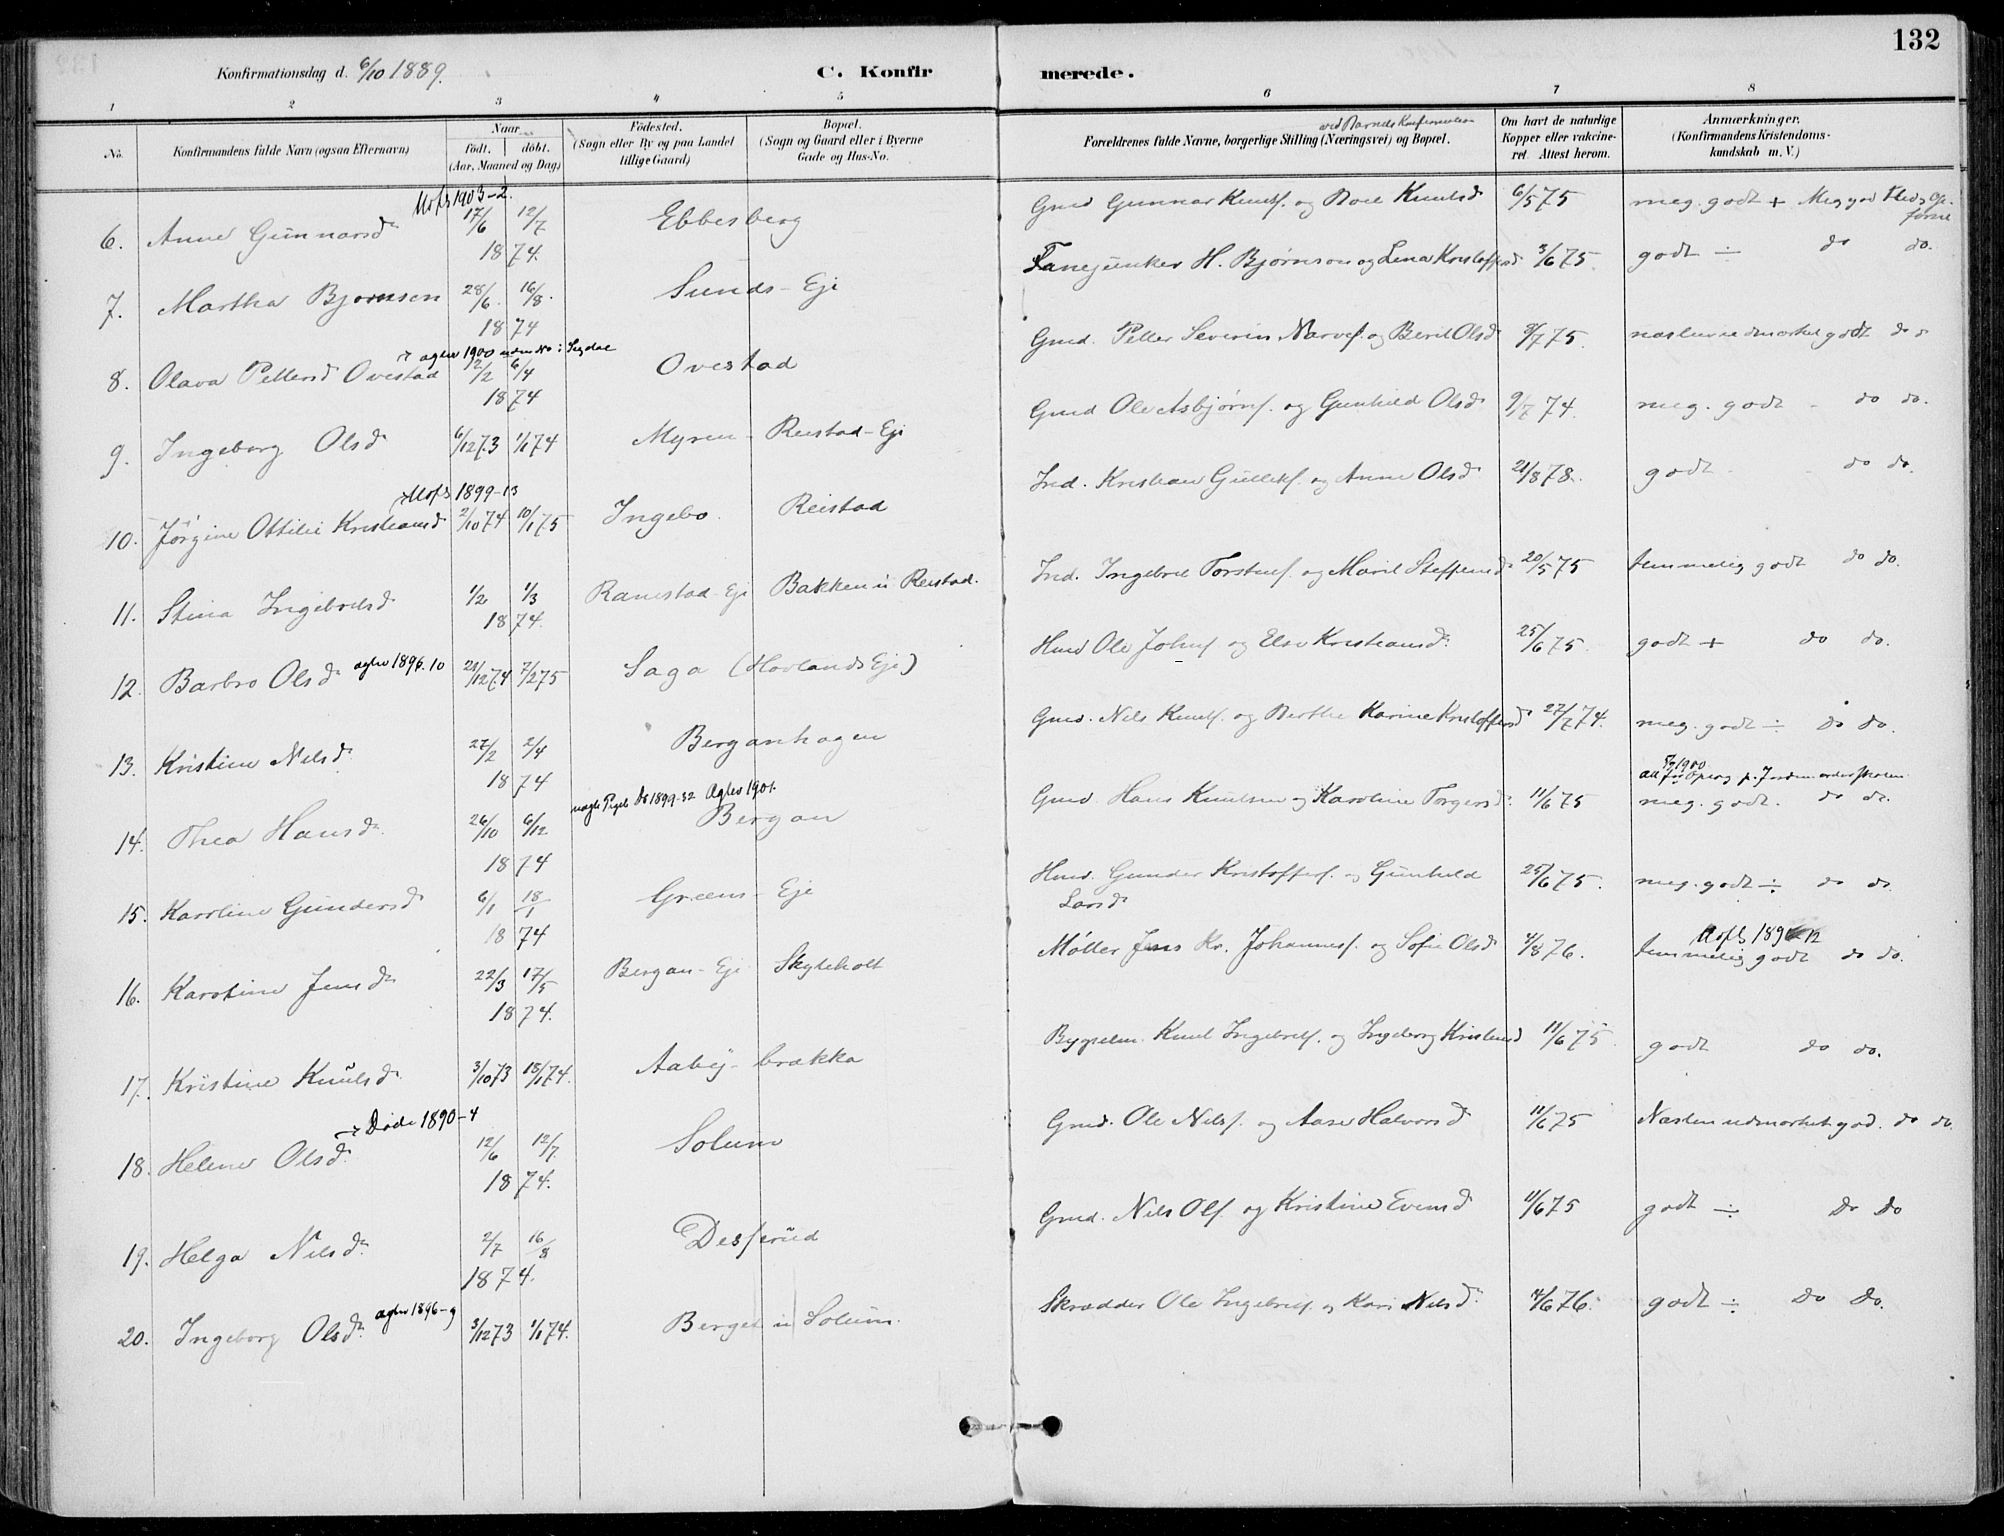 132
Konfirmationsdag d. 6/10 1889.
C. Konfirmerede.
1 2 3 4 5 6 7 8
No.
Konfirmandens fulde Navn (ogsaa Efternavn)
Naar
født. døbt.
(Aar, Maaned og Dag)
Fødested.
(Sogn eller By og paa Landet
tillige Gaard)
Bopæl.
(Sogn og Gaard eller i Byerne
Gade og Hus-No.
ved Barnets Konfirmation
Forældrenes fulde Navne, borgerlige Stilling (Næringsvei) og Bopæl.
Om havt de naturlige
Kopper eller vakcine-
ret Attest herom.
Anmærkninger.
(Konfirmandens Kristendoms-
kundskab m. V.)
1903-2.
6. Anne Gunnarsd. 17/6 12/7 1874. Ebbesberg Gmd Gunnar Knuts. og Knutsd 6/5 75 meg. godt + Meg god Flid og Op-
førsel
7. Martha Bjørnsen 28/6 16/8 1874 Sunds-Eje Fanejunker H. Bjørnson og Lena Kristoffersd 3/6 75. godt ÷ do do.
agter 1900 uden No i Sigdal
8. Olava Pettersd Ovestad 12/2 6/4 1874 Ovestad Gmd. Petter Severin Narves. og Berit Olsd 9/7 75. næsten udmærket godt do
9. Ingeborg Olsd 6/12 73 1/1 74 Myren- Reistad-Eje Gmd Ole Asbjørns. og Gunhild Olsd 9/7 74. meg. godt - do do.
1899-13
10. Jørgine Ottilie Kristiansd 2/10 74 10/1 75 Ingebo. Reistad Ind. Kristian Gulliks. og Anne Olsd 21/8 78. godt - do do.
11. Stina Ingebretsd 1/2 1/3 1874. Ranestad-Eje Bakken u Reistad. Ind. Ingebret Torstens. og Marit Steffensd 20/5 75 temmelig godt do do.
12. Barbro Olsd agter 1896.10 21/12 74 7/2 75 Saga (Hovlands Eje) Hmd Ole Johns. og Else Kristiansd. 25/6 75. godt + do do.
13. Kristine Nilsd. 27/2 2/4 1874 Berganhagen Gmd. Nils Knuts. og Berthe Karine Kristoffersd 27/7 74. meg. godt ÷ do do.
1899-32 Agter 1901.
1900
14. Thea Hansd. 26/10 6/12 1874 Bergan Gmd. Hans Knutsen og Karoline Torgersd. 11/6 75 meg. godt. do do.
15. Karoline Gundersd 6/1 18/1 1874 Græens-Eje Hmd. Gunder Kristoffers. og Gunhild
Larsd 25/6 75. meg. godt ÷ do do.
16. Karoline Jensd. 22/3 17/5 1874. Bergan-Eje Skyteholt Møller Jens Kr. Johannes. og Sofie Olsd 4/8 76. temmelig godt do do.
17. Kristine Knutsd. 3/10 73 18/1 74. Aaby-brække Bygselm. Knut Ingebrets. og Ingeborg Kristensd 11/6 75. godt do do.
Døde 1890-4
18. Helene Olsd. 12/6 12/7. 1874. Solum Gmd. Ole Nils. og Aase Halvorsd 11/6 75 Næsten udmærket god. do do.
19. Helga Nilsd. 2/7 16/8 1874. Desserud Gmd. Nils Ols. og Kristine Evensd 11/6 75 godt ÷ Do Do
20. Ingeborg Olsd. agter 1896-9 3/12 73 1/1 74. Berget u Solum. Skrædder Ole Ingebrets. og Kari Nilsd. 4/6 76. godt ÷ Do Do.